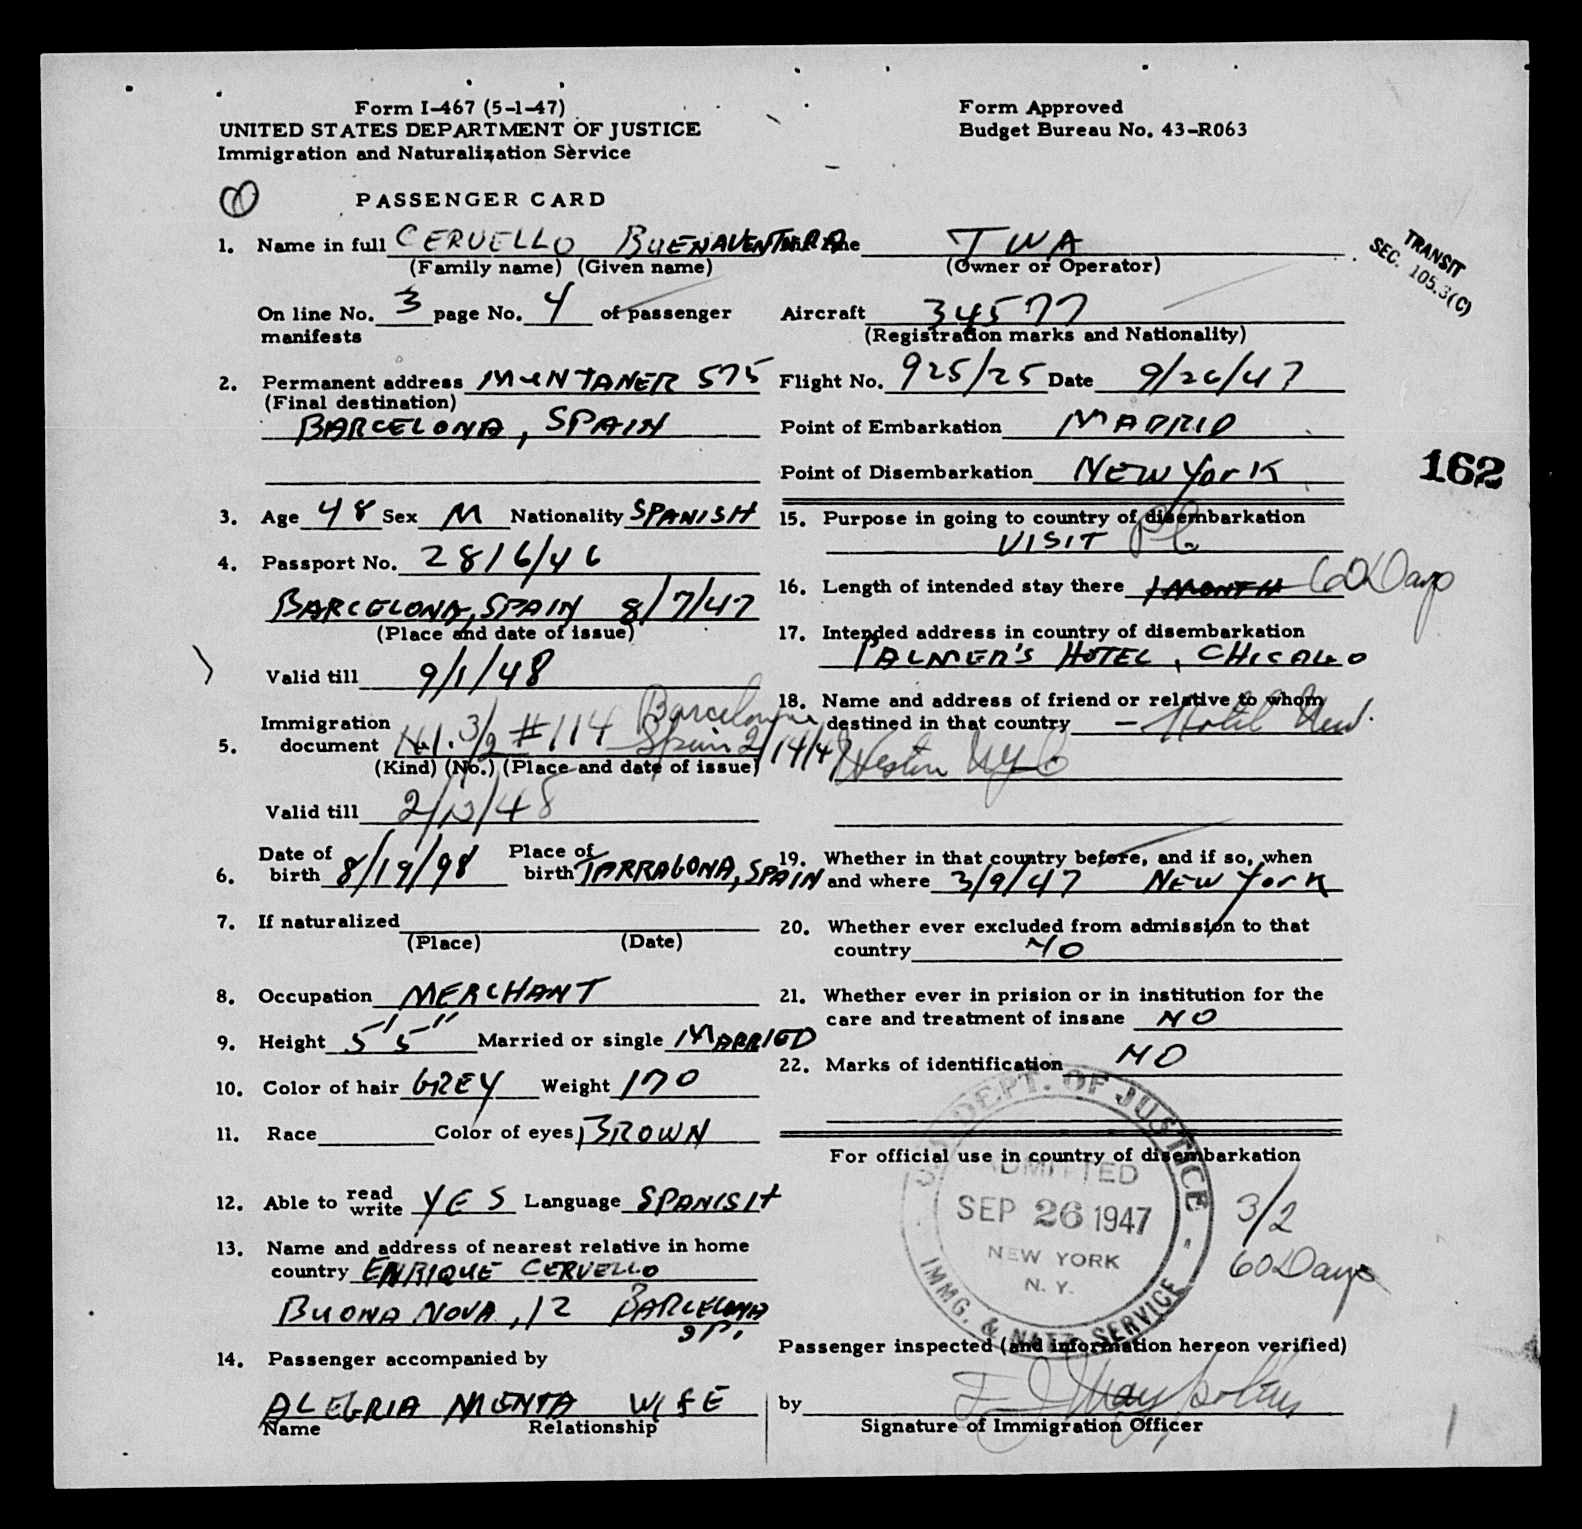 Form I-467 (5-1-47)
UNITED STATES DEPARTMENT OF JUSTICE
Immigration and Naturalization Service
Form Approved
Budget Bureau No. 43-R063
PASSENGER CARD
1. Name in full CERVELLO BUENAVENTURA
(Family name) (Given name)
On line No. 3 page No. 4 of passenger
manifests
2. Permanent address MUNTANER 575
(Final destination)
BARCELONA, SPAIN
3. Age 48 Sex M Nationality SPANISH
4. Passport No. 2816/46
BARCELONA, SPAIN 8/7/47
(Place and date of issue)
Valid till 9/1/48
Immigration
5. document N.I. 3/2 #114 Barcelona
Spain 2/14/47
(Kind) (No.) (Place and date of issue)
Valid till 2/13/48
Date of Place of
6. birth 8/19/98 birth TARRAGONA, SPAIN
7. If naturalized
(Place) (Date)
8. Occupation MERCHANT
9. Height 5'5" Married or single MARRIED
10. Color of hair GREY Weight 170
11. Race Color of eyes BROWN
12. Able to read write YES Language SPANISH
13. Name and address of nearest relative in home
country ENRIQUE CERVELLO
BUONA NOVA, 12 BARCELONA
SP.
14. Passenger accompanied by
ALEGRIA MENTA WIFE
Name Relationship
Airline TWA
(Owner or Operator)
Aircraft 34577
(Registration marks and Nationality)
Flight No. 925/25 Date 9/26/47
Point of Embarkation MADRID
Point of Disembarkation NEW YORK
15. Purpose in going to country of disembarkation
VISIT Pl.
16. Length of intended stay there 1 MONTH 60 Days
17. Intended address in country of disembarkation
PALMER'S HOTEL, CHICAGO
18. Name and address of friend or relative to whom
destined in that country — Hotel New
Weston NYC
19. Whether in that country before, and if so, when
and where 3/9/47 NEW YORK
20. Whether ever excluded from admission to that
country NO
21. Whether ever in prision or in institution for the
care and treatment of insane NO
22. Marks of identification NO
For official use in country of disembarkation
U.S. DEPT. OF JUSTICE
ADMITTED
SEP 26 1947
NEW YORK
N. Y.
IMMG. & NATZ. SERVICE
3/2
60 Days
Passenger inspected (and information hereon verified)
by
Signature of Immigration Officer
TRANSIT
SEC. 105.3(C)
162